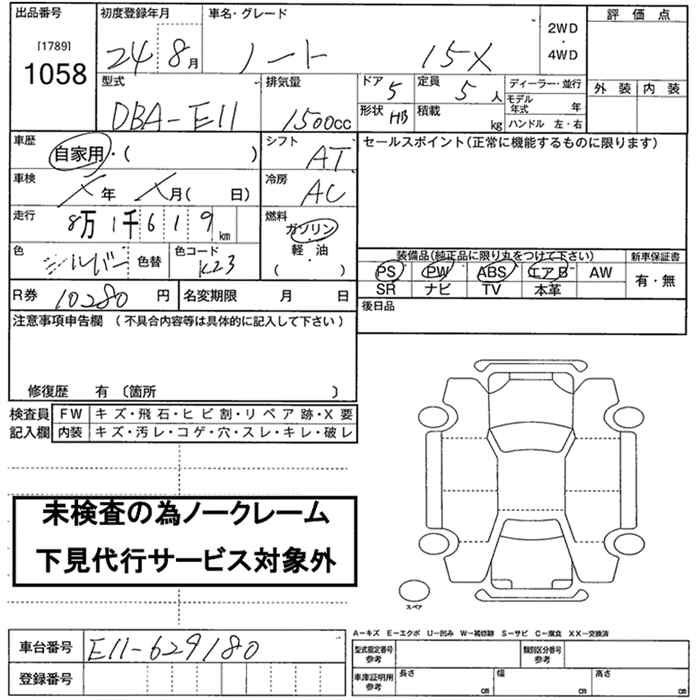 出品番号 初度登録年月 車名・グレード 2WD ・ 4WD 評価点
[1789] 1058 24 8月 ノート 15X
外装 内装
型式 排気量 ドア 5 定員 5人 ディーラー・並行
DBA-E11 1500cc 形状 HB 積載 kg モデル年式 年
ハンドル 左・右
車歴 自家用・( ) シフト AT セールスポイント(正常に機能するものに限ります)
車検 X年 X月( 日) 冷房 AC
走行 8万1千619km 燃料 ガソリン・軽・油 ( )
色 シルバー 色替 色コード K23
装備品(純正品に限り丸をつけて下さい) 新車保証書
PS PW ABS エアB AW 有・無
SR ナビ TV 本革
R券 10280円 名変期限 月 日
後日品
注意事項申告欄(不具合内容等は具体的に記入して下さい)
修復歴 有〔箇所 〕
検査員 FW キズ・飛石・ヒビ割・リペア跡・X要
記入欄 内装 キズ・汚レ・コゲ・穴・スレ・キレ・破レ
未検査の為ノークレーム
下見代行サービス対象外
スペア
A-キズ E-エクボ U-凹み W-補修跡 S-サビ C-腐食 XX-交換済
車台番号 E11-629180 型式指定番号 参考 類別区分番号 参考
登録番号 車庫証明用 参考 長さ cm 幅 cm 高さ cm